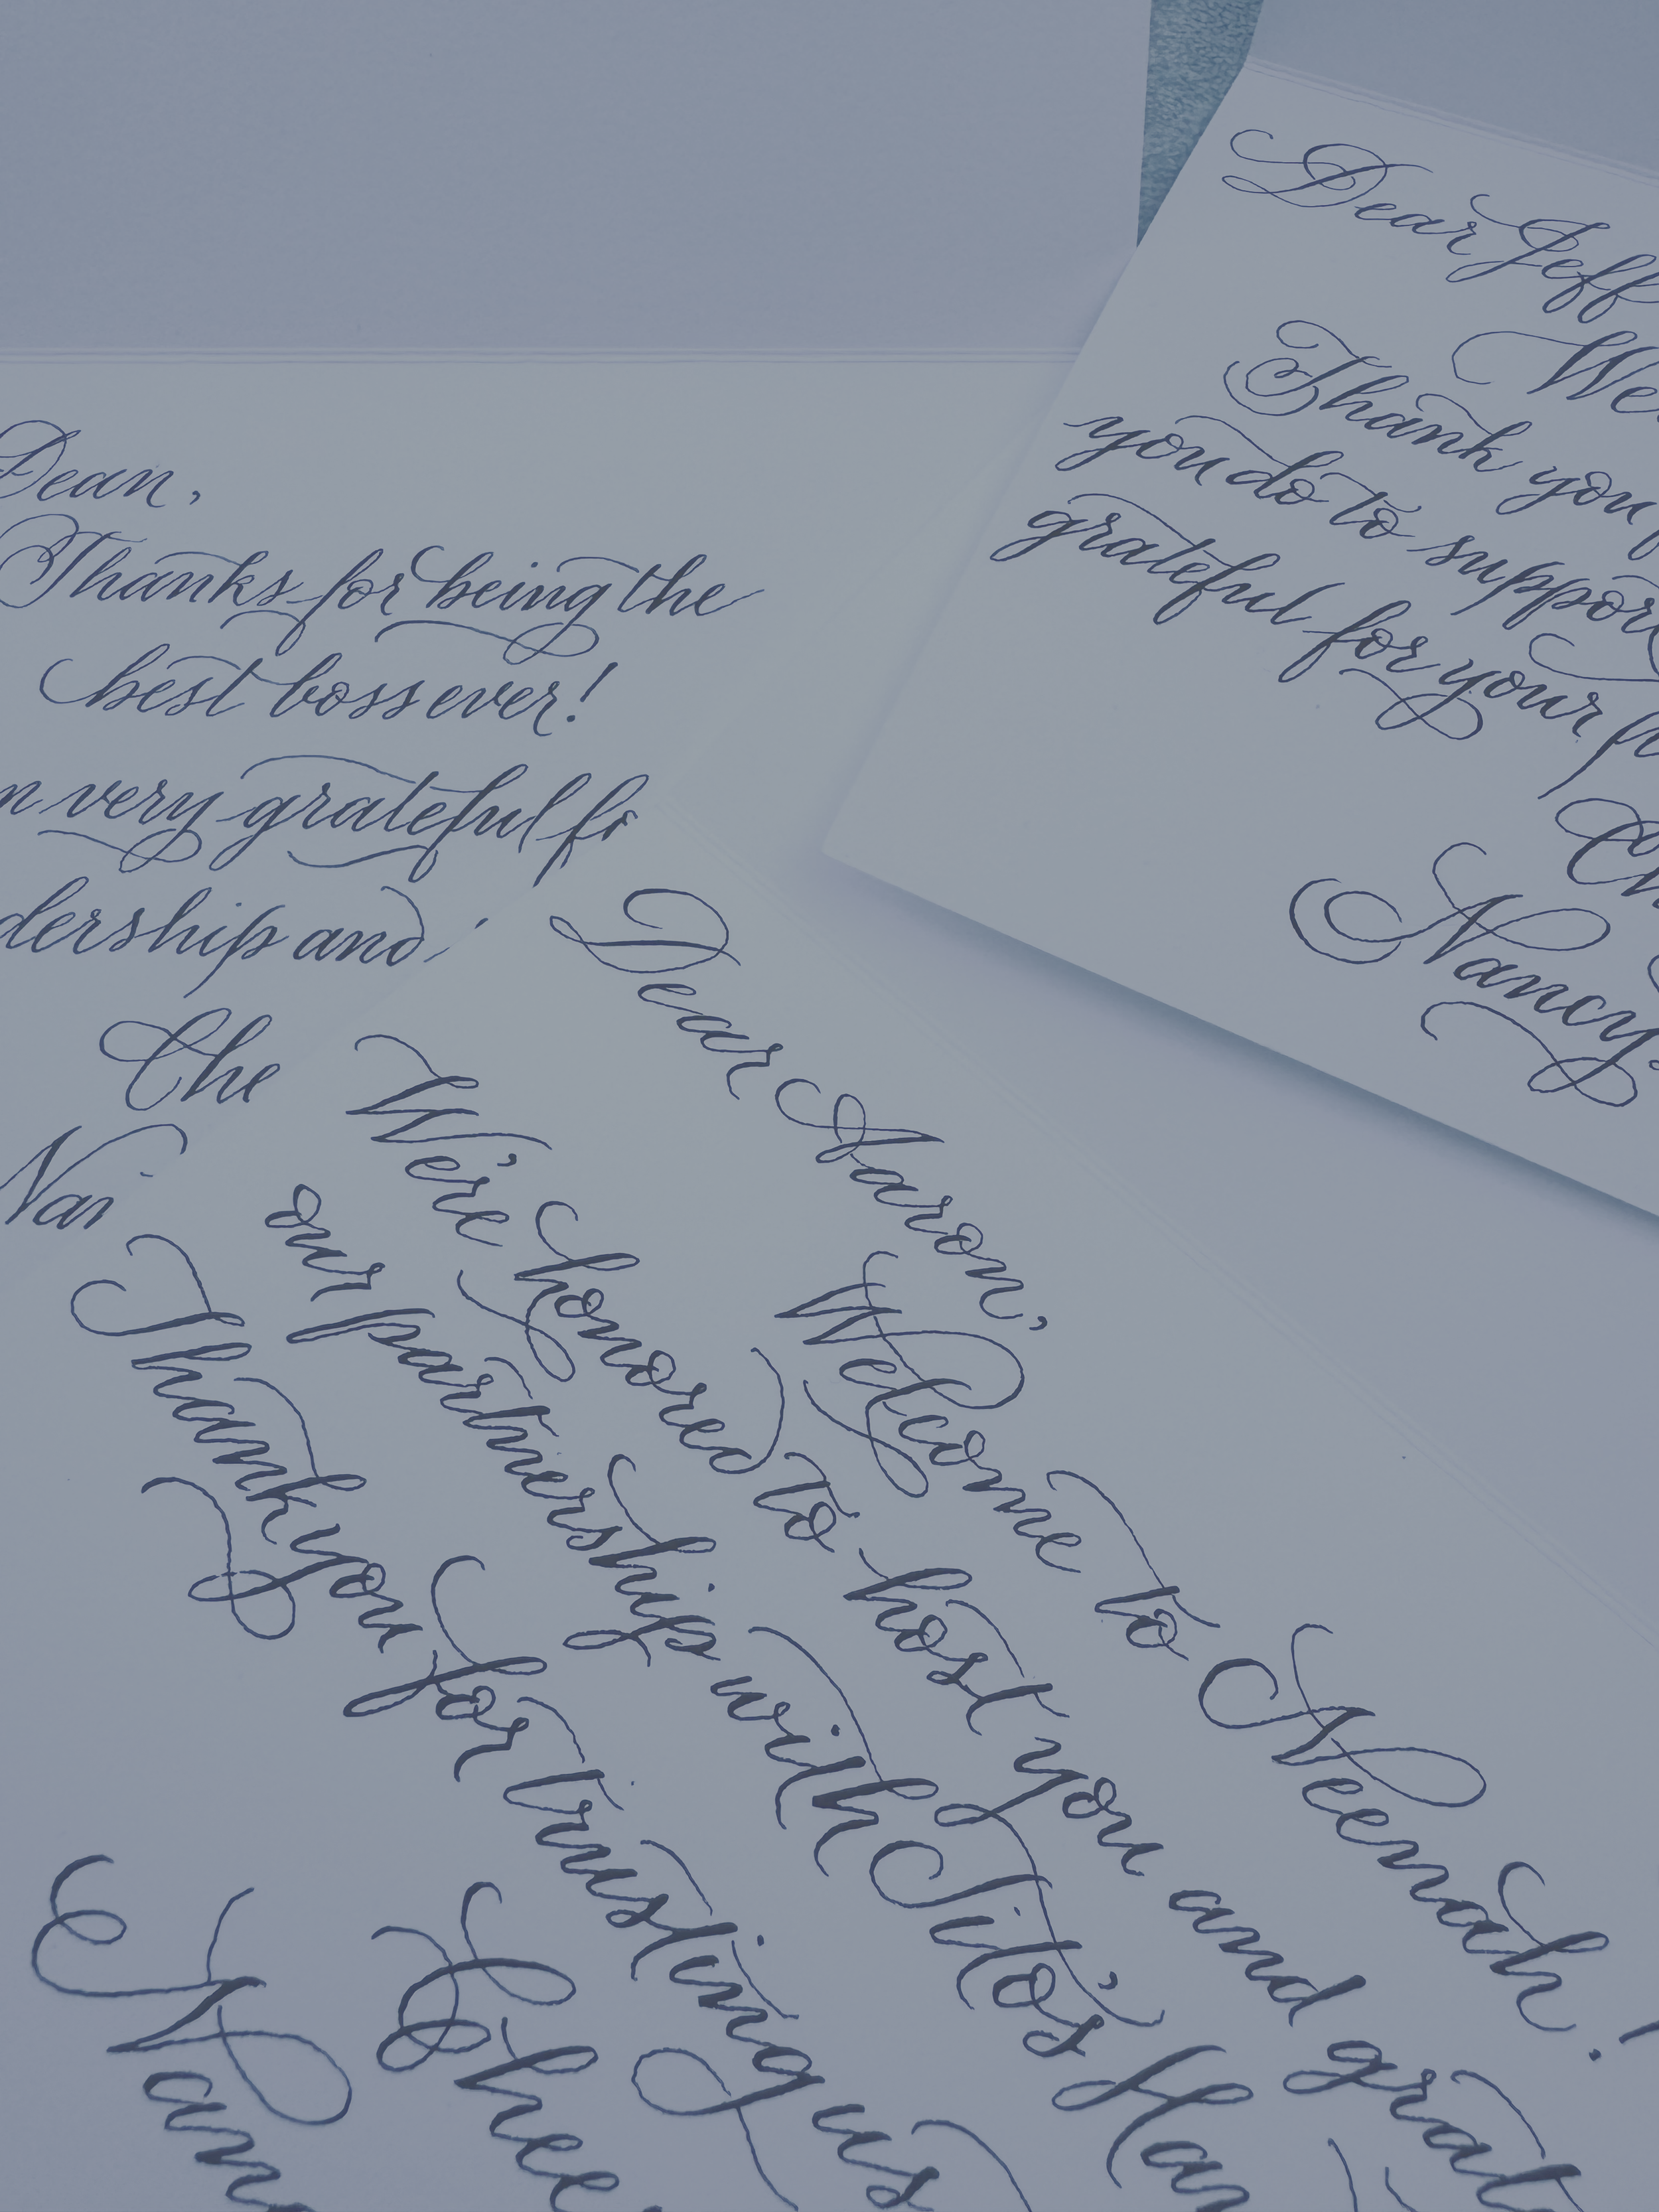 Dean,
Thanks for being the
best boss ever!
very grateful
and
Dear Jeff
Thank you
you do to support
grateful for your
Nancy
Dear Aaron,
Welcome to Neenah!
We're honored to host you and
our partnership with Tito's
Thank you for trusting us